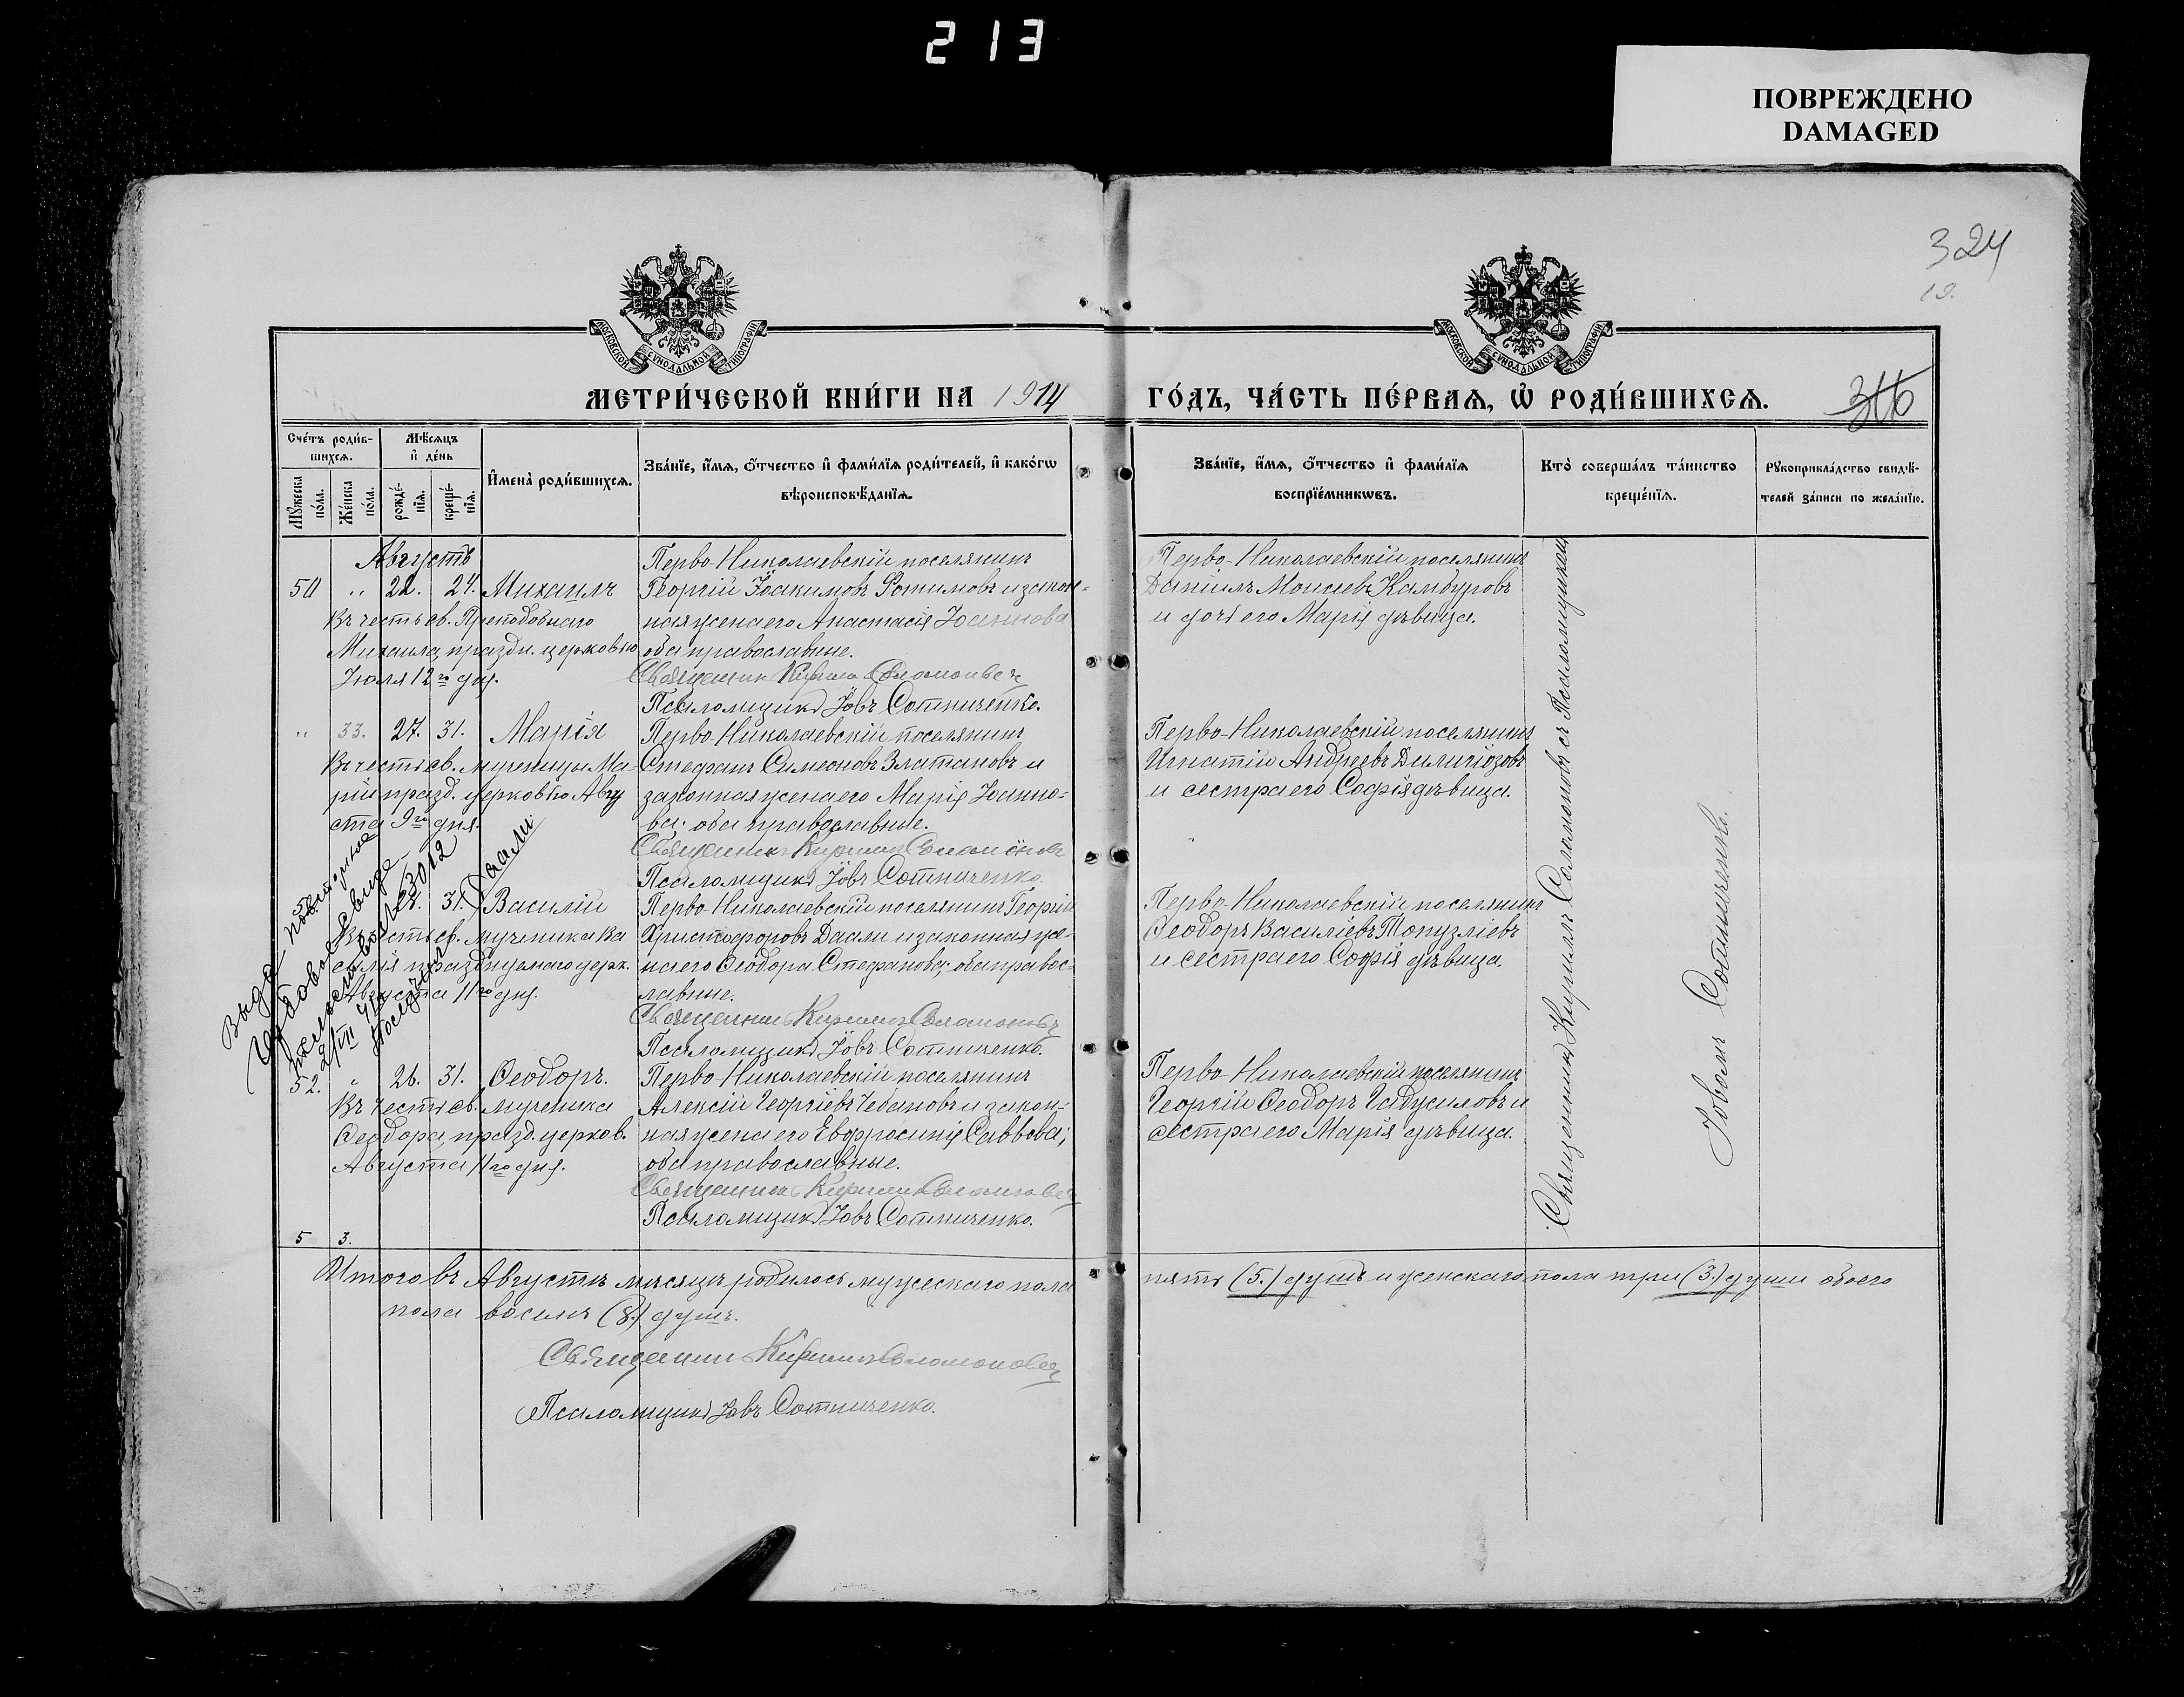 213
ПОВРЕЖДЕНО
DAMAGED
324
19.
МОСКОВСКОЙ СѴНОДАЛЬНОЙ ТИПОГРАФІИ
МОСКОВСКОЙ СѴНОДАЛЬНОЙ ТИПОГРАФІИ
МЕТРИ́ЧЕСКОЙ КНИ́ГИ НА 1914
ГО́ДЪ, ЧА́СТЬ ПЕ́РВАѦ, Ѡ҆ РОДИ́ВШИХСѦ.
Сче́тъ роди́в-
шихсѧ.
Мꙋ́жеска по́ла.
Же́нска по́ла.
Мѣ́сѧцъ
и҆ де́нь
рожде́-
нїѧ.
креще́-
нїѧ.
И҆мена̀ роди́вшихсѧ.
Зва́нїе, и҆́мѧ, ѻ҆́тчество и҆ фами́лїѧ роди́телей, и҆ како́гѡ
вѣроисповѣ́данїѧ.
Зва́нїе, и҆́мѧ, ѻ҆́тчество и҆ фами́лїѧ
воспрїе́мникѡвъ.
Кто̀ соверша́лъ та́инство
креще́нїѧ.
Рꙋкоприкла́дство свидѣ́-
телей за́писи по жела́нїю.
Августъ
50 " 22. 24. Михаилъ
Въ честь св. Преподобнаго
Михаила, праздн. церковью
Іюля 12го дня.
Перво-Николаевскій поселянинъ
Георгій Іоакимовъ Фотимовъ и закон-
ная жена его Анастасія Іоаннова
оба православные.
Священникъ Кириллъ Саламоновъ
Псаломщикъ Іовъ Сотниченко.
Перво-Николаевскій поселянинъ
Даніилъ Моисеевъ Камбуровъ
и дочь его Марія дѣвица.
" 33. 27. 31. Марія
Въ честь св. мученицы Ма-
ріи празд. церковью Авгу
ста 9го дня.
Перво-Николаевскій поселянинъ
Стефанъ Симеоновъ Златановъ и
законная жена его Марія Іоанно-
ва; оба православные.
Священникъ Кириллъ Саламоновъ
Псаломщикъ Іовъ Сотниченко.
Перво-Николаевскій поселянинъ
Игнатій Андреевъ
и сестра его Софія дѣвица.
31. Василій
Въ честь св. мученика Ва
силія празднуемаго церк.
Августа 11го дня.
Перво-Николаевскій поселянинъ Георгій
Христофоровъ Даали и законная же-
на его Ѳеодора Стефанова; оба правос-
лавные.
Священникъ Кириллъ Саламоновъ
Псаломщикъ Іовъ Сотниченко.
Перво-Николаевскій поселянинъ
Ѳеодоръ Василіевъ Топузліевъ
и сестра его Софія дѣвица.
Даали
52. " 26. 31. Ѳеодоръ.
Въ честь св. мученика
Ѳеодора, празд. церков.
Августа 11го дня.
Перво-Николаевскій поселянинъ
Алексій Георгіевъ Чебановъ и закон-
ная жена его Евфросинія Саввова;
оба православные.
Священникъ Кириллъ Саламоновъ
Псаломщикъ Іовъ Сотниченко.
Перво-Николаевскій поселянинъ
Георгій Ѳеодоръ и
сестра его Марія дѣвица.
Священникъ Кириллъ Саламоновъ съ Псаломщикомъ
Іовомъ Сотниченко.
5 3.
Итого въ Августѣ мѣсяцѣ родилось мужескаго пола
пять (5.) душъ и женскаго пола три (3.) души обоего
пола восемь (8.) душъ.
Священникъ Кириллъ Саламоновъ
Псаломщикъ Іовъ Сотниченко.